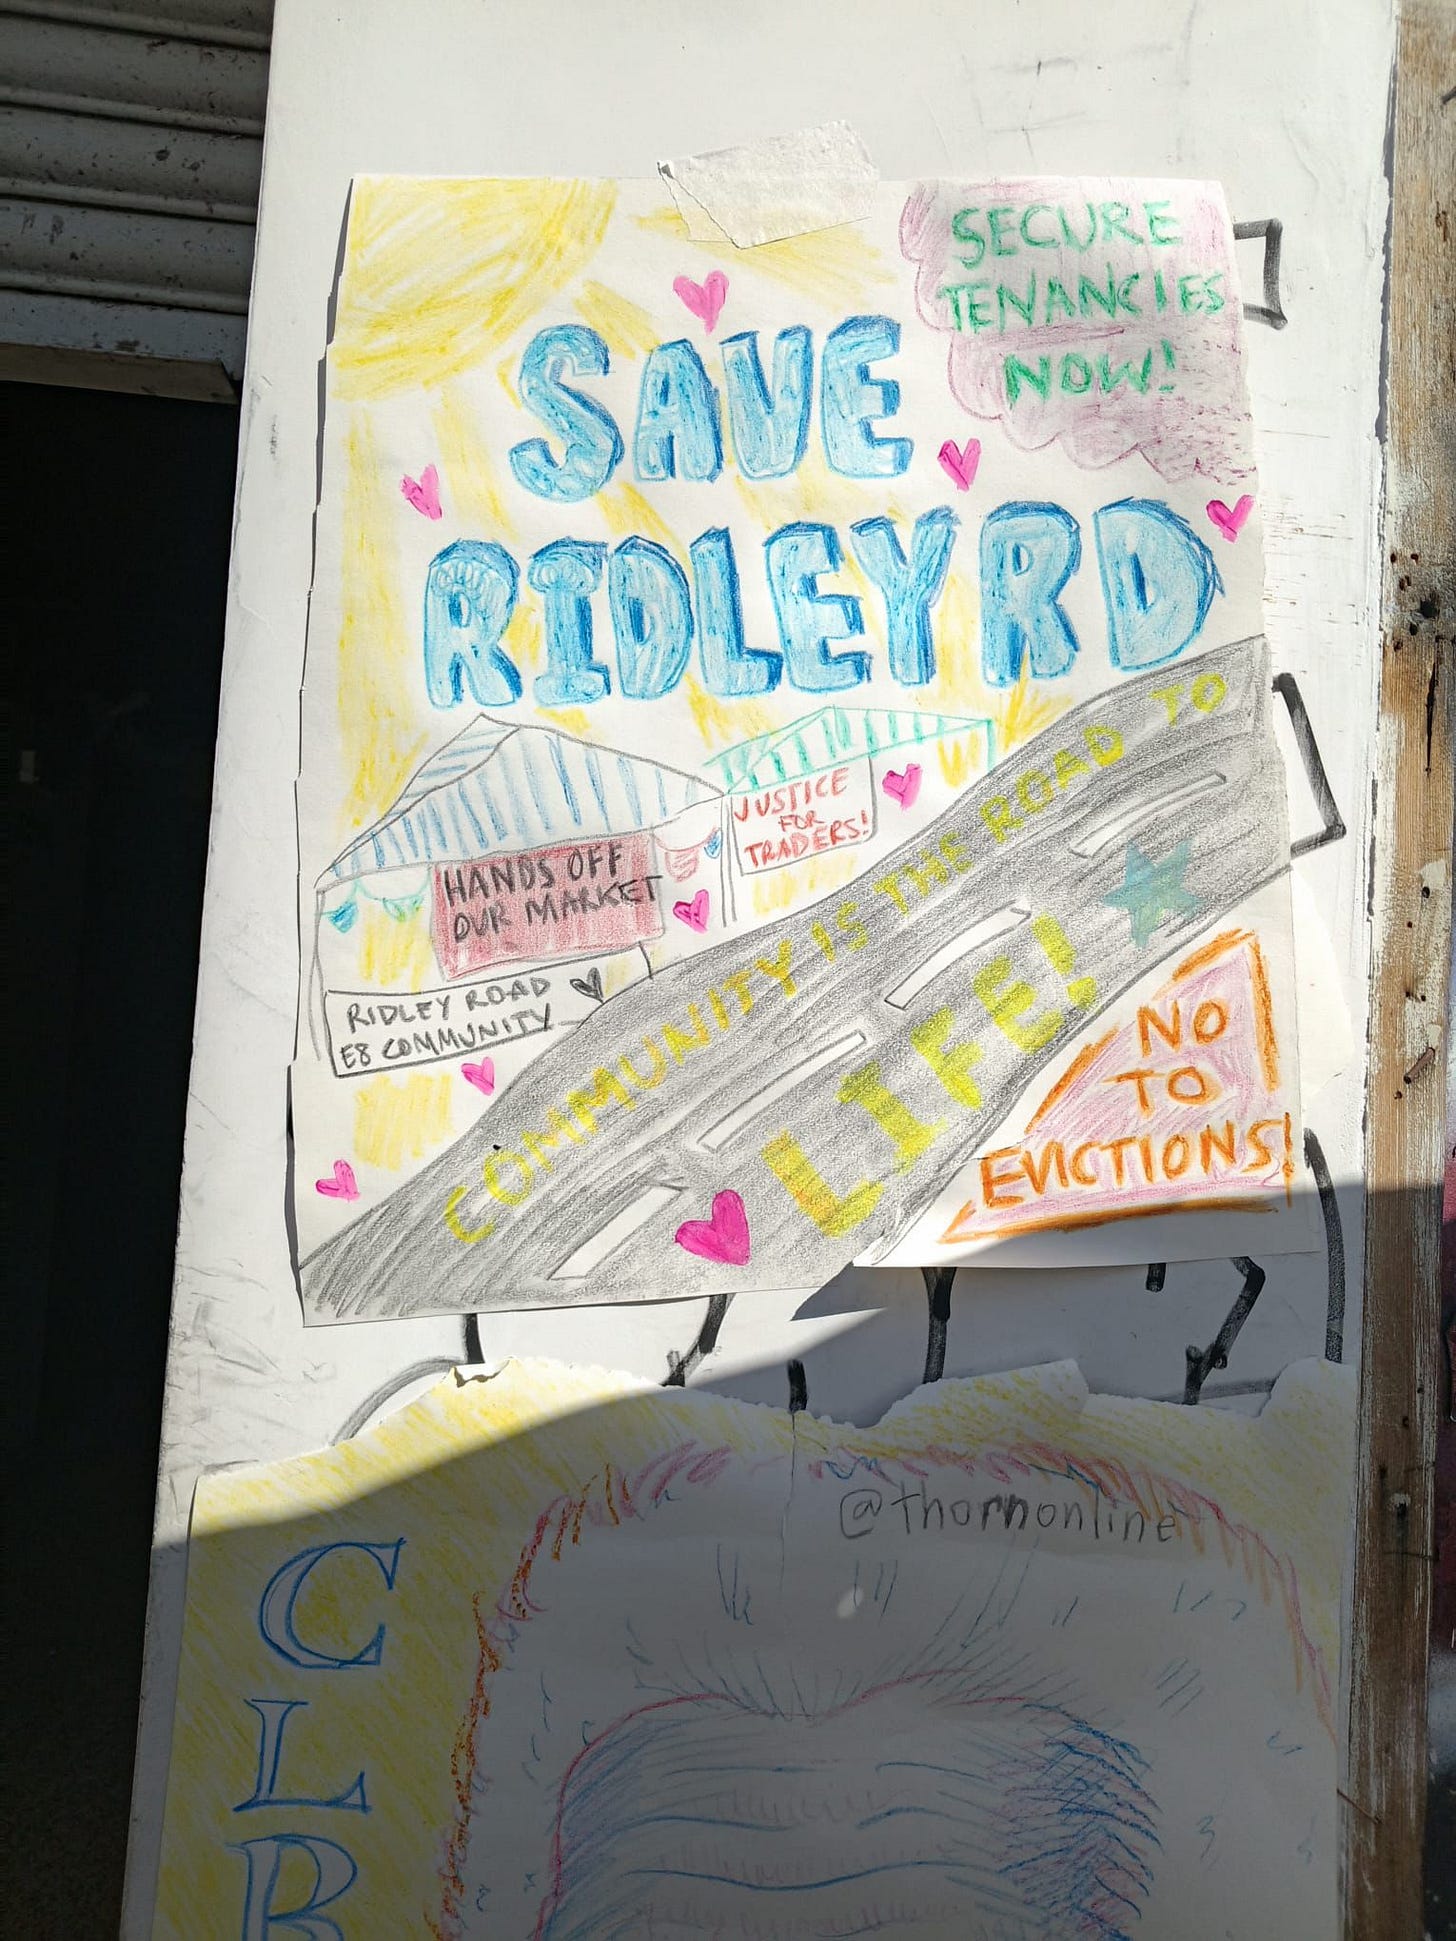 SECURE
TENANCIES
NOW!
SAVE
RIDLEY RD
JUSTICE
FOR
TRADERS!
HANDS OFF
OUR MARKET
RIDLEY ROAD
E8 COMMUNITY
COMMUNITY IS THE ROAD TO
LIFE!
NO
TO
EVICTIONS!
@thornonline
C
L
B